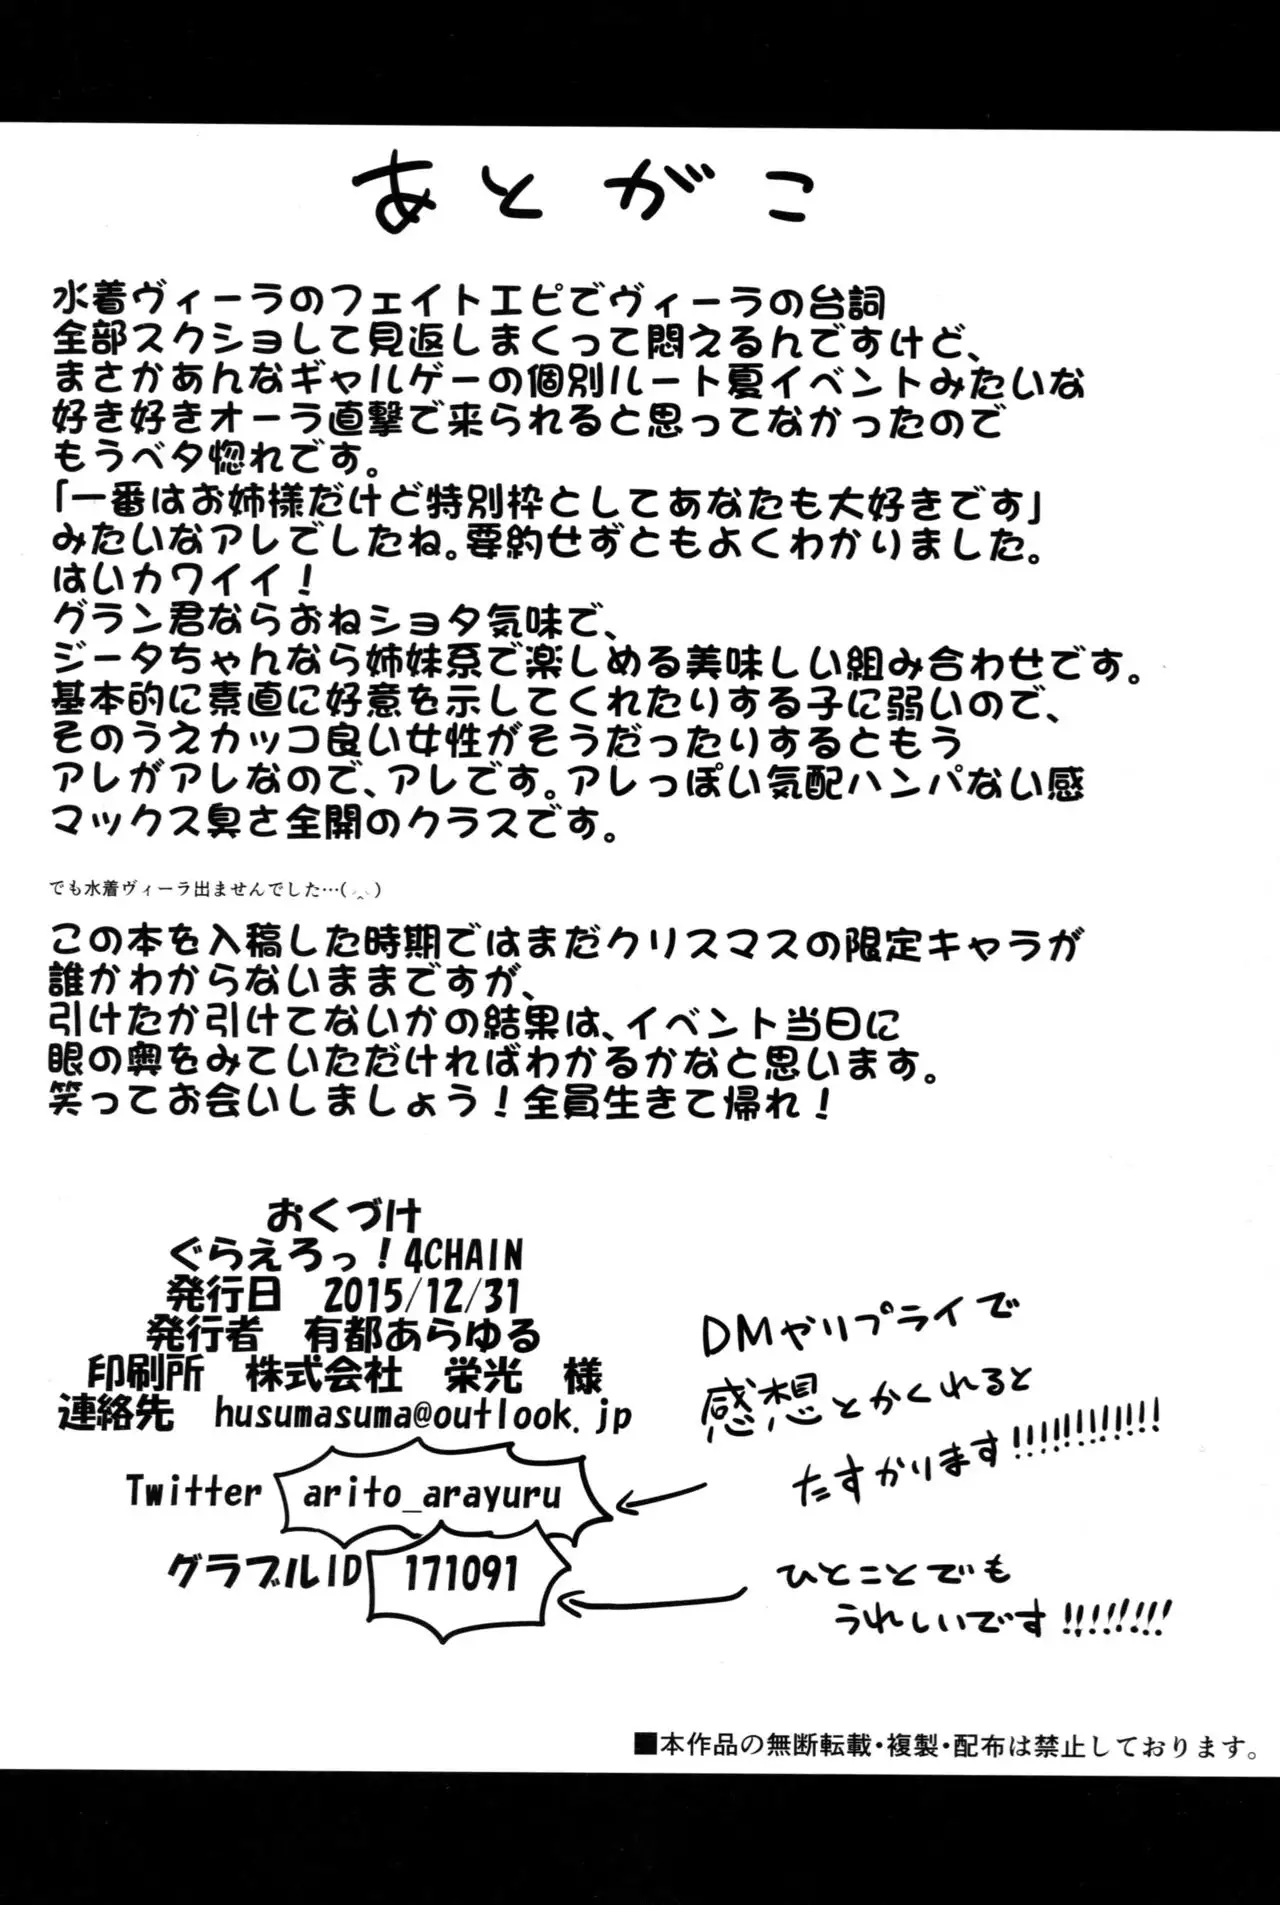 あとがこ
水着ヴィーラのフェイトエピでヴィーラの台詞
全部スクショして見返しまくって悶えるんですけど、
まさかあんなギャルゲーの個別ルート夏イベントみたいな
好き好きオーラ直撃で来られると思ってなかったので
もうベタ惚れです。
「一番はお姉様だけど特別枠としてあなたも大好きです」
みたいなアレでしたね。要約せずともよくわかりました。
はいカワイイ!
グラン君ならおねショタ気味で、
ジータちゃんなら姉妹系で楽しめる美味しい組み合わせです。
基本的に素直に好意を示してくれたりする子に弱いので、
そのうえカッコ良い女性がそうだったりするともう
アレがアレなので、アレです。アレっぽい気配ハンパない感
マックス臭さ全開のクラスです。
でも水着ヴィーラ出ませんでした…( ◞‸◟ )
この本を入稿した時期ではまだクリスマスの限定キャラが
誰かわからないままですが、
引けたか引けてないかの結果は、イベント当日に
眼の奥をみていただければわかるかなと思います。
笑ってお会いしましょう!全員生きて帰れ!
おくづけ
ぐらえろっ!4CHAIN
発行日 2015/12/31
発行者 有都あらゆる
印刷所 株式会社 栄光 様
連絡先 husumasuma@outlook.jp
Twitter arito_arayuru
グラブルID 171091
DMやリプライで
感想とかくれると
たすかります!!!!!!!!!!!!
ひとことでも
うれしいです!!!!!!!!
■本作品の無断転載・複製・配布は禁止しております。